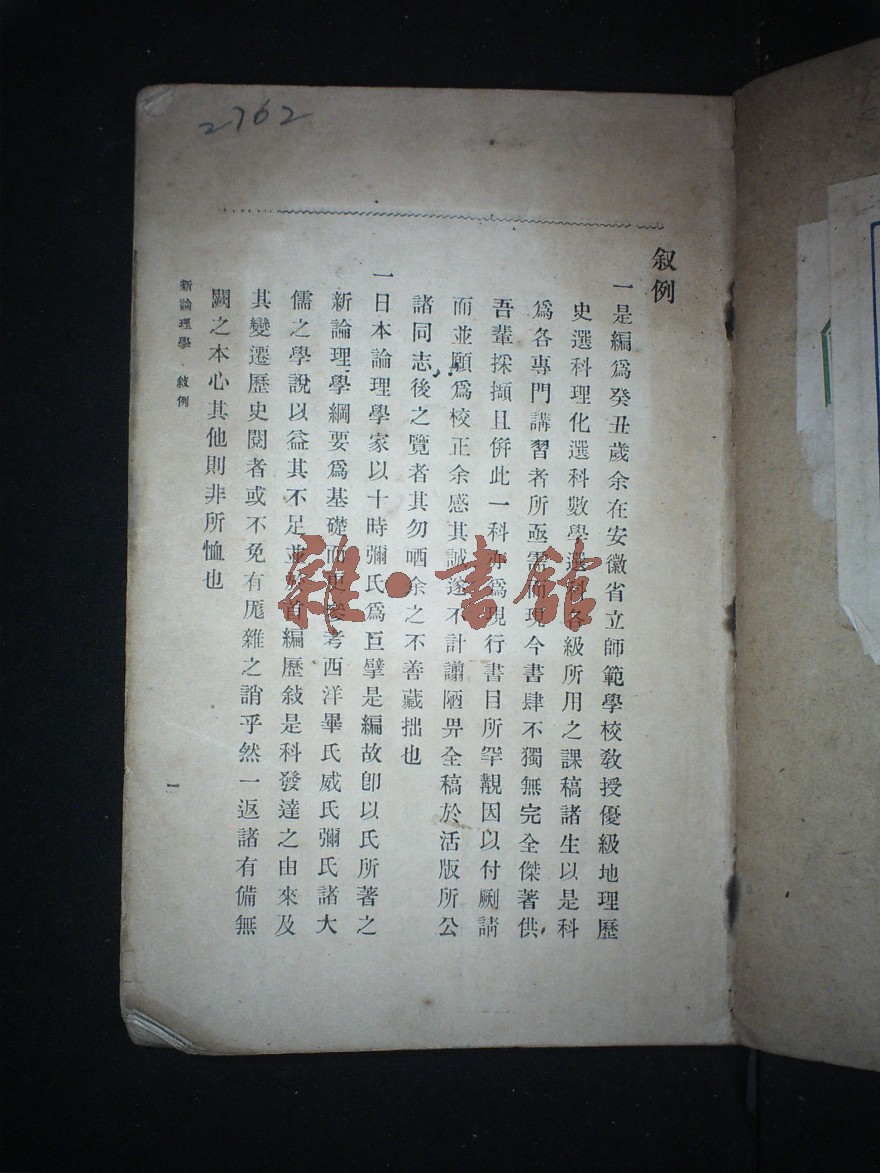 2762
叙例
一是編爲癸丑歲余在安徽省立師範學校敎授優級地理歷
史選科理化選科數學選科各級所用之課稿諸生以是科
爲各專門講習者所亟需而現今書肆不獨無完全傑著供
吾輩採擷且併此一科亦爲現行書目所罕覯因以付劂請
而並願爲校正余感其誠遂不計謭陋畀全稿於活版所公
諸同志後之覽者其勿哂余之不善藏拙也
一日本論理學家以十時彌氏爲巨擘是編故卽以氏所著之
新論理學綱要爲基礎而更參考西洋畢氏威氏彌氏諸大
儒之學說以益其不足並於首編歷敍是科發達之由來及
其變遷歷史閱者或不免有厖雜之誚乎然一返諸有備無
闕之本心其他則非所恤也
新論理學 敍例
一
雜·書館